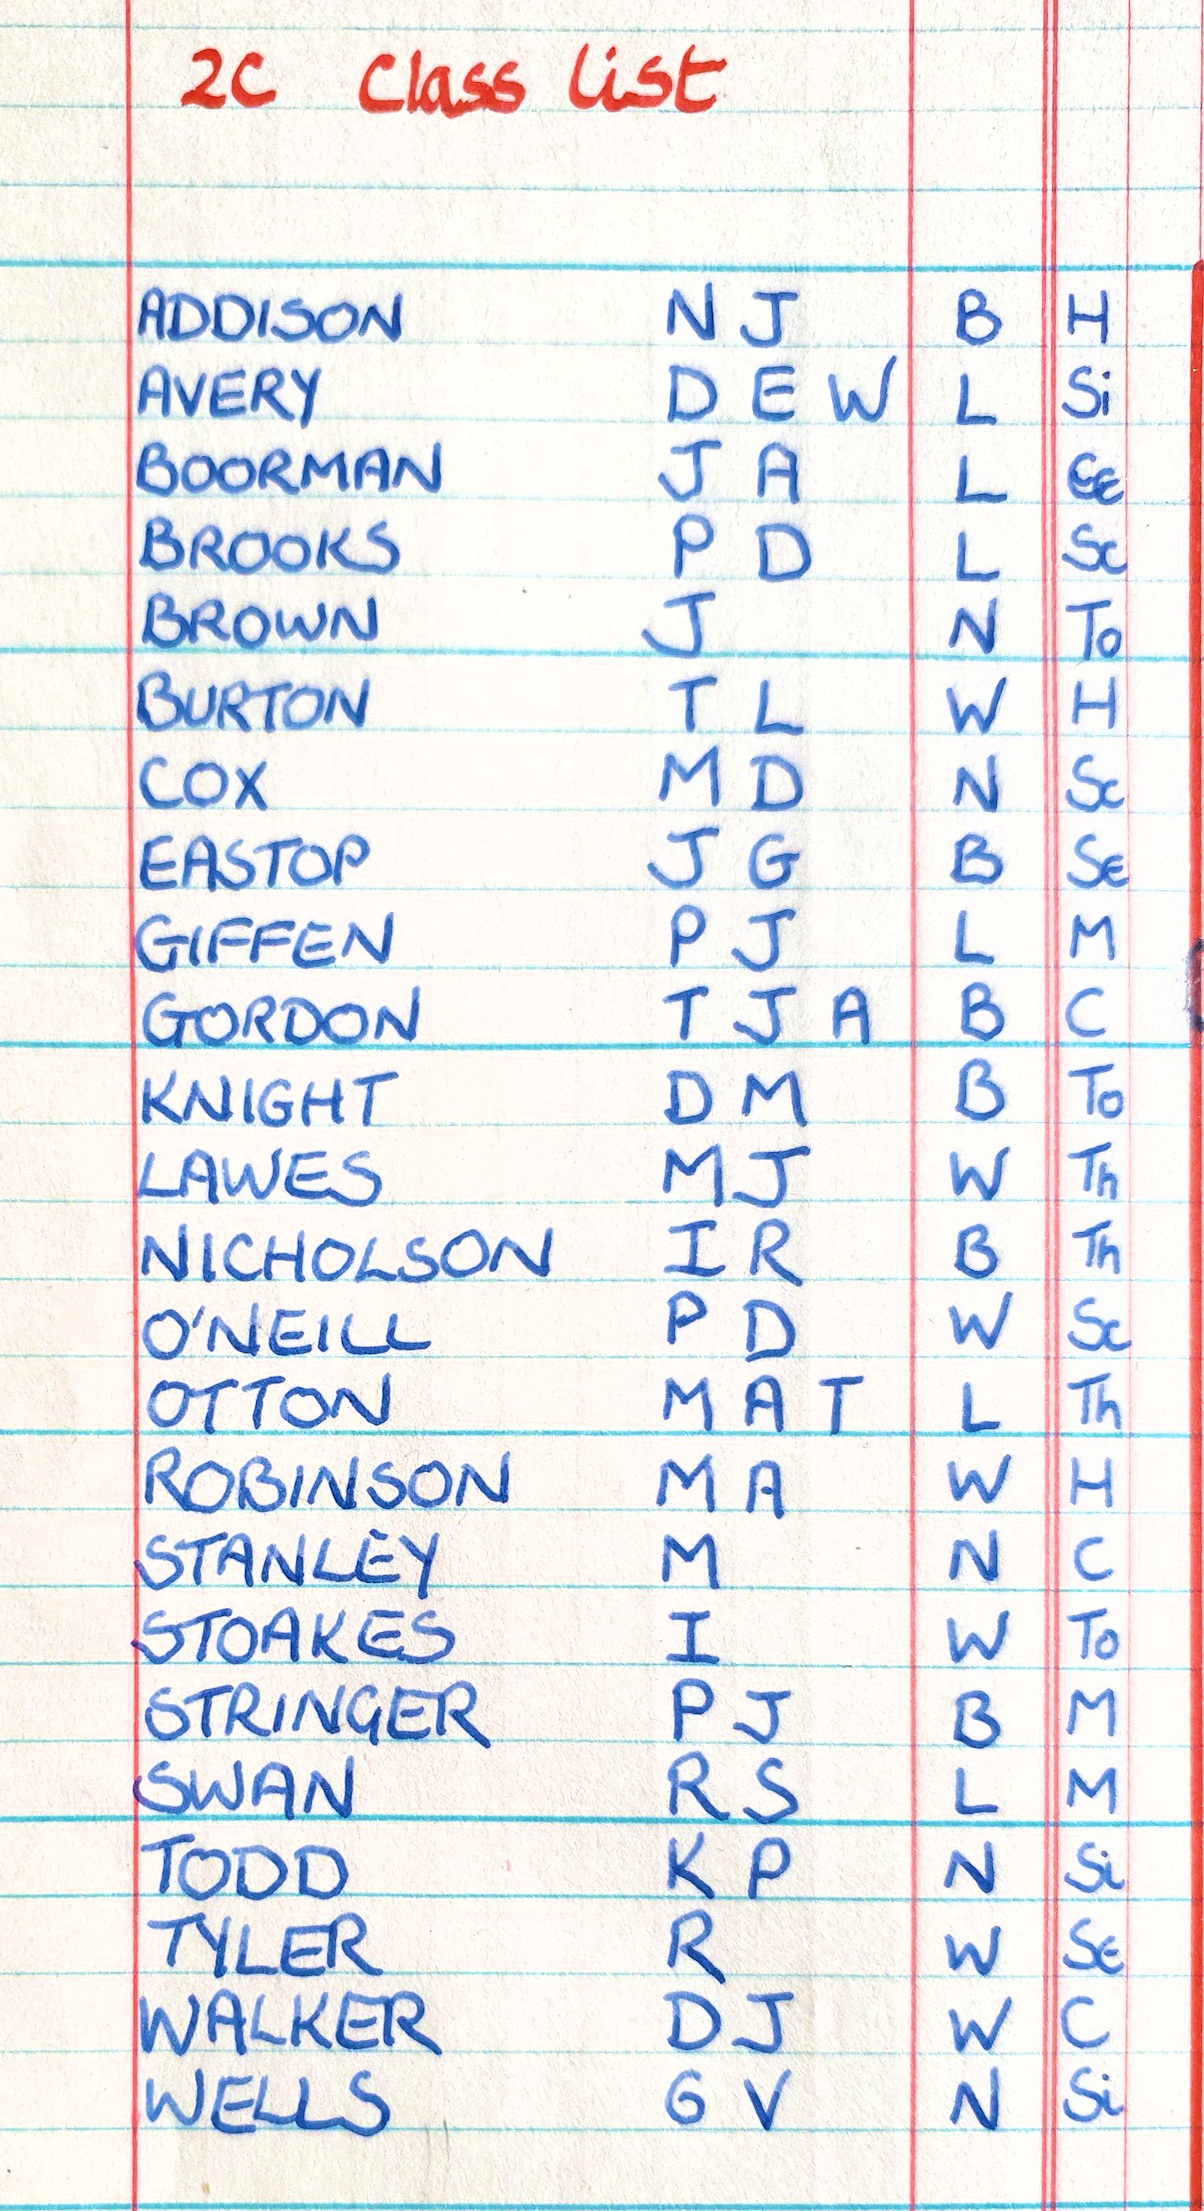 2C Class List
ADDISON N J B H
AVERY D E W L Si
BOORMAN J A L EE
BROOKS P D L Sc
BROWN J N To
BURTON T L W H
COX M D N Sc
EASTOP J G B SE
GIFFEN P J L M
GORDON T J A B C
KNIGHT D M B To
LAWES M J W Th
NICHOLSON I R B Th
O'NEILL P D W Sc
OTTON M A T L Th
ROBINSON M A W H
STANLEY M N C
STOAKES I W To
STRINGER P J B M
SWAN R S L M
TODD K P N Si
TYLER R W SE
WALKER D J W C
WELLS G V N Si